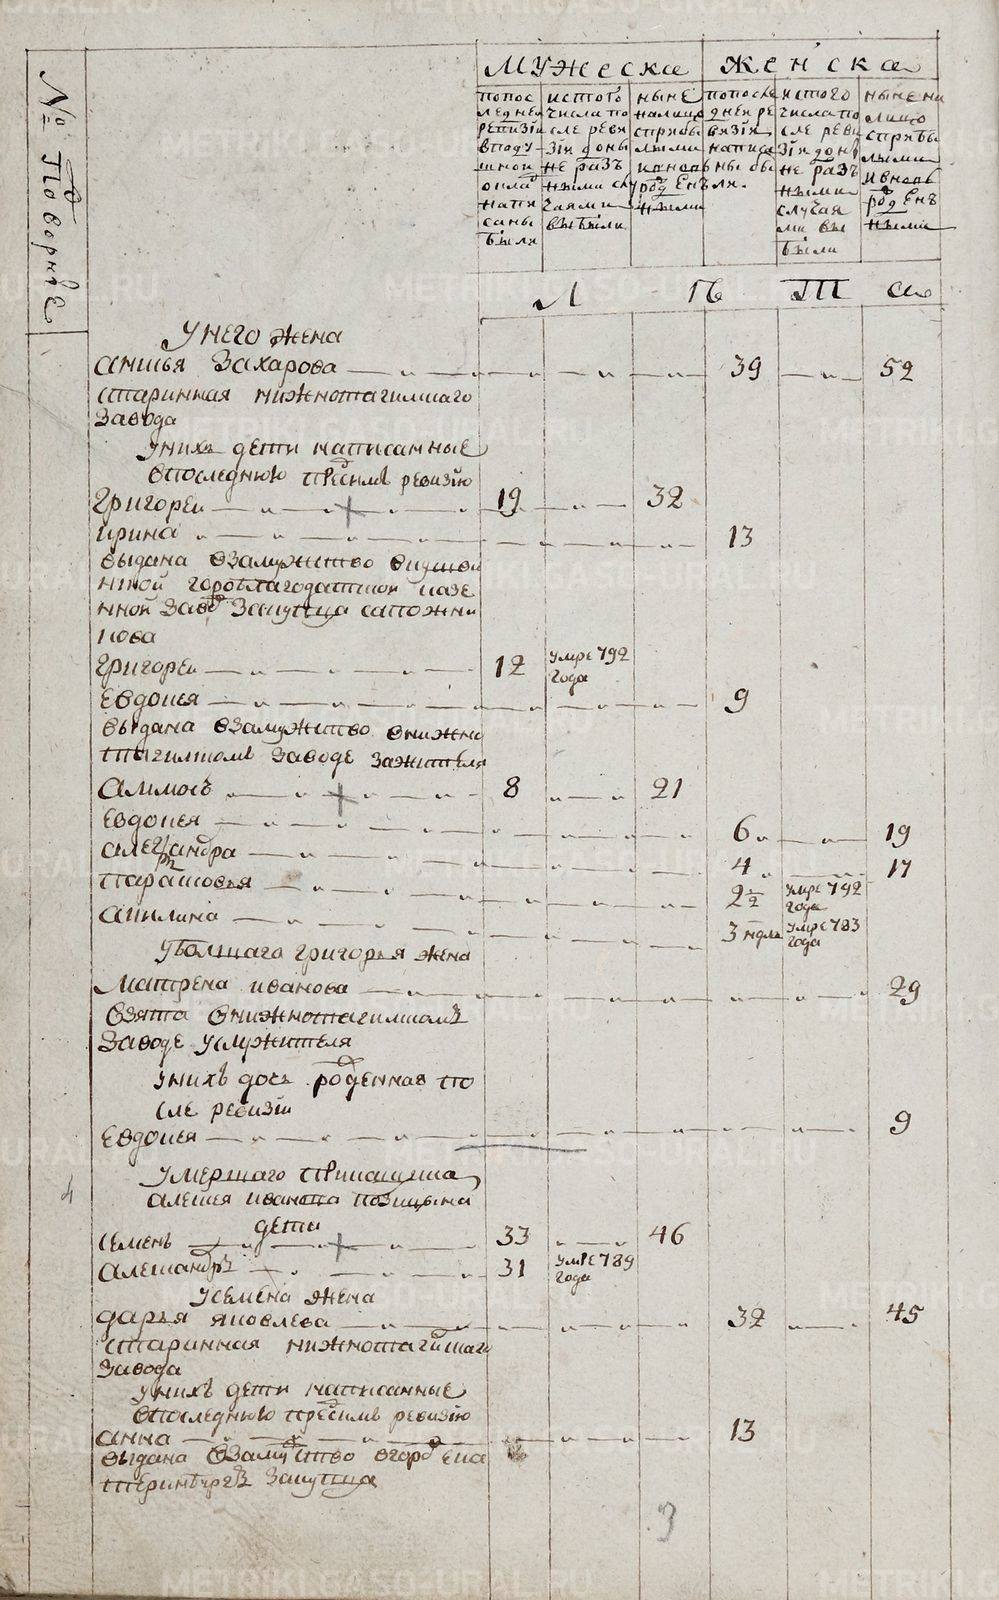 № Подворные
МУЖЕСКА
ЖЕНСКА
попос леднеи ревизіи вподу шнои окладъ напи саны были
истого числа по сле реви зіи до ны не разъ ными слу чаями выбыли
ныне налицо сприбы лыми ивновь рожденъ ными
попосле дней ре визіи написа ны бы ли.
истого числа по сле реви зіи до ны не разъ ными случая ми вы были
ныне на лицо сприбы лыми ивновь рожденъ ными
Л Ѣ Т А
Унего жена
анисья Захарова 39 52
старинная нижнотагилскаго
Завода
Унихъ дети написанные
впоследнюю пресимъ ревизію
Григореи 19 32
ирина 13
выдана взамужство
нной гороблагодатской казе
нной Завод Закупца сапожни
кова
Григореи 12 умре 792 года
Евдокея 9
выдана взамужство внижно
тагилскомъ Заводе Зажителя
8 21
Евдокея 6 19
александра 4 17
Парасковья 2½ умре 792 года
акилина 3 недль умре 783 года
Уболшаго григорья жена
Матрена иванова 29
Взята внижнотагилскомъ
Заводе Ужителя
Унихъ дочь рожденная по
сле ревизіи
Евдокея 9
4
Умершаго
алексея иванова
дети
Семенъ 33 46
александръ 31 умре 789 года
Усемена жена
дарья яковлева 32 45
старинная нижнотагилскаго
Завода
Унихъ дети написанные
впоследнюю пресимъ ревизію
анна 13
выдана Взамужство вгород ека
теринбургъ Закупца
3
METRIKI.GASO-URAL.RU